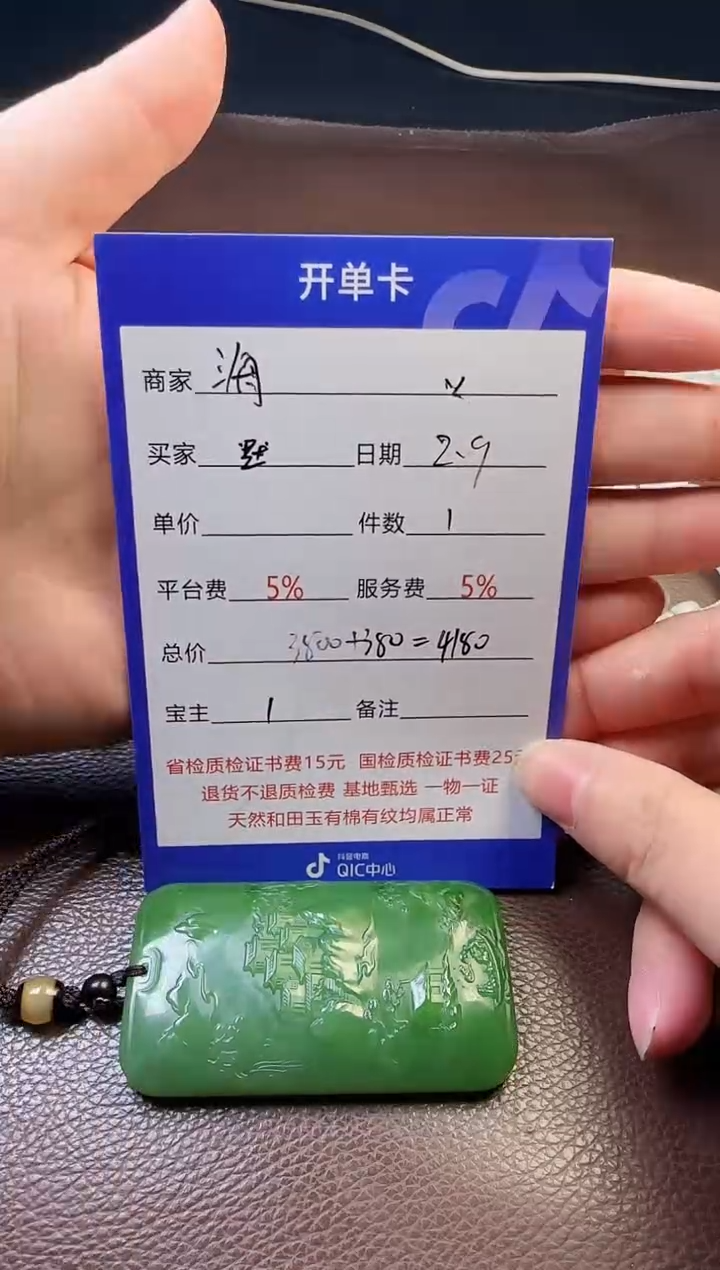 开单卡
商家 海
买家 默 日期 2、9
单价 件数 1
平台费 5% 服务费 5%
总价 3800+380=4180
宝主 1 备注
省检质检证书费15元 国检质检证书费25
退货不退质检费 基地甄选 一物一证
天然和田玉有棉有纹均属正常
抖音电商
QIC中心